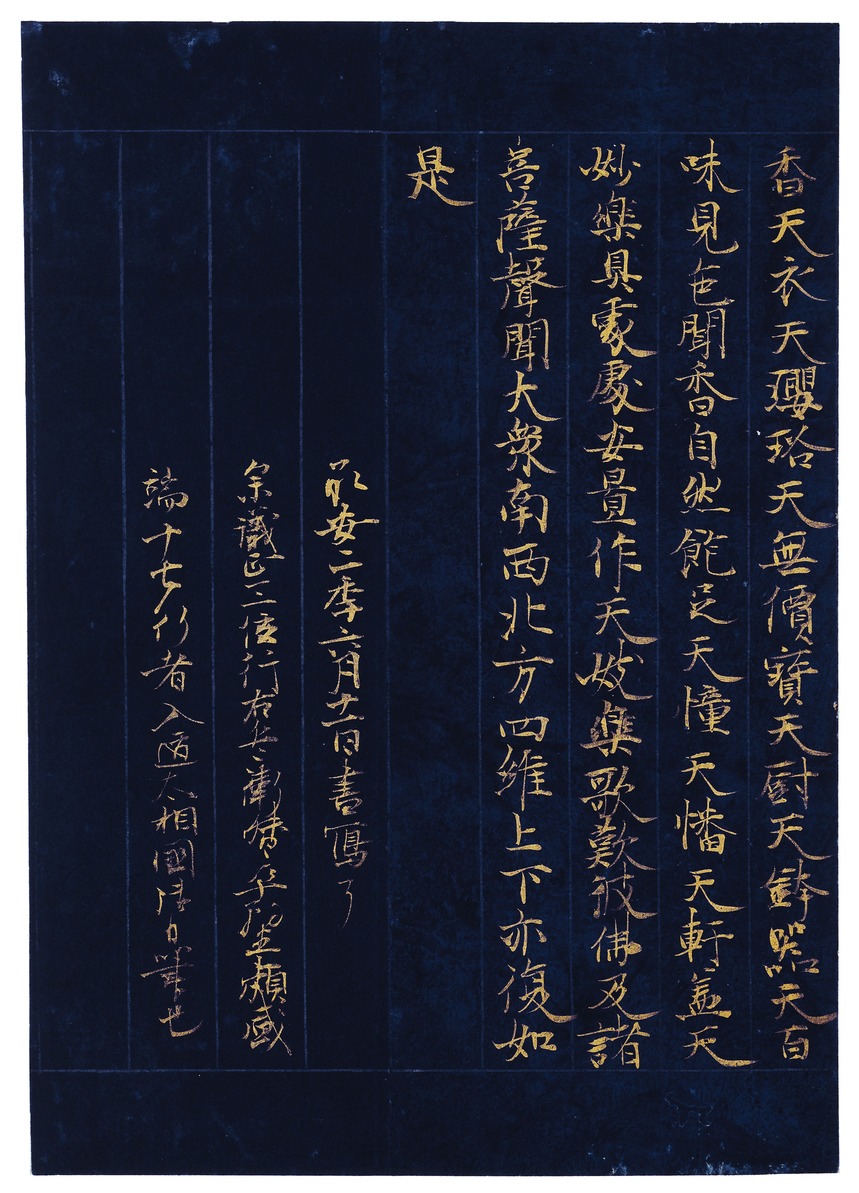 香天衣天瓔珞天無價寶天厨天鉢器天百
味見色聞香自然飽足天幢天幡天軒盖天
妙樂具處處安置作天妓樂歌歎彼佛及諸
菩薩聲聞大衆南西北方四維上下亦復如
是
承安二年六月十一日書寫了
参議正三位行右兵衛督平朝臣頼盛
端十七行者入道太相國御自筆也